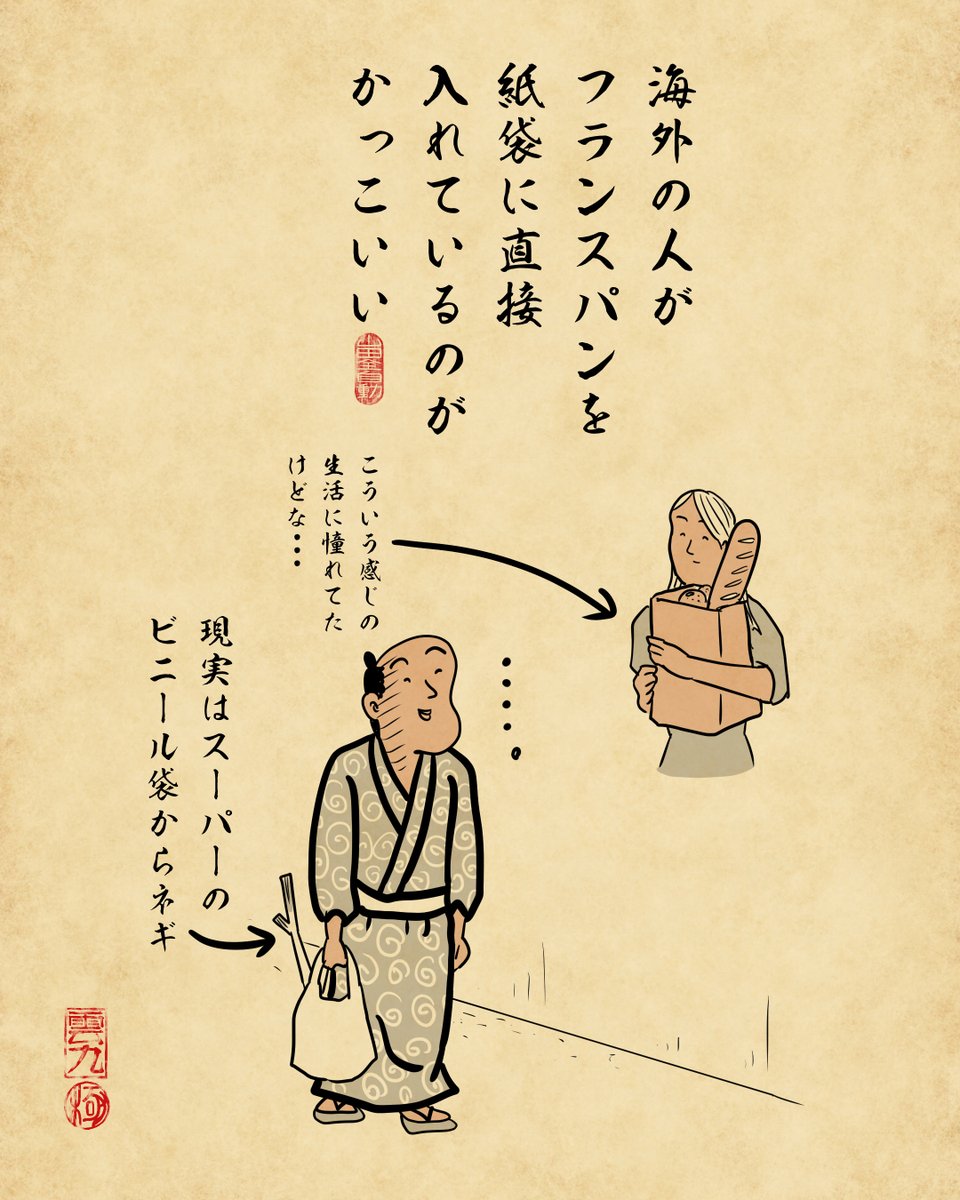 海外の人が
フランスパンを
紙袋に直接
入れているのが
かっこいい
こういう感じの
生活に憧れてた
けどな・・・
現実はスーパーの
ビニール袋からネギ